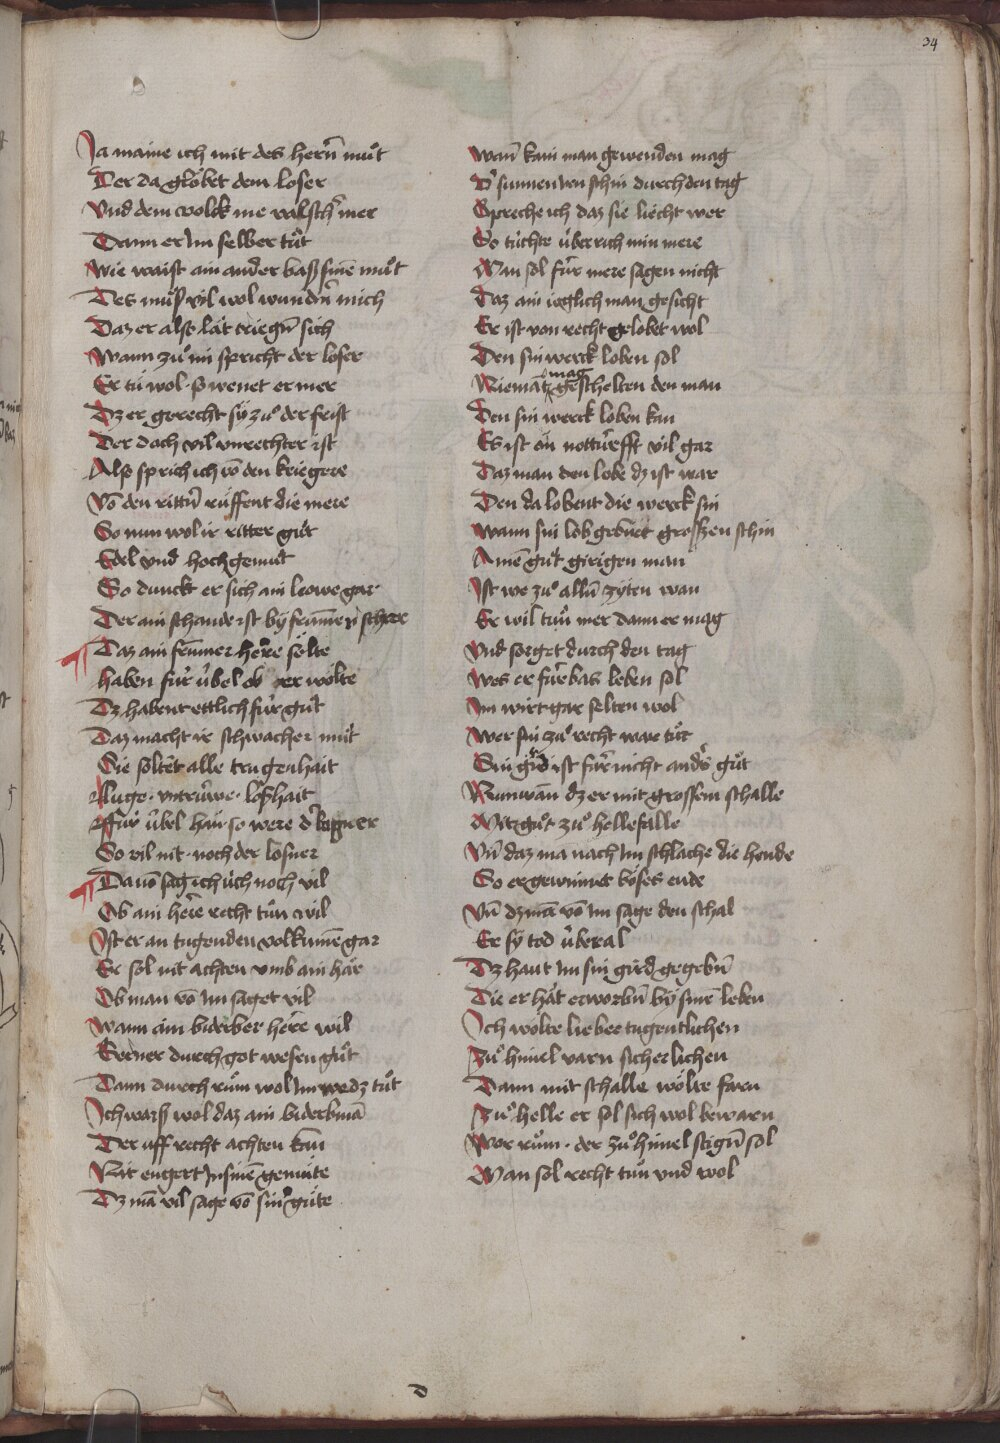 34
Ja maine ich mit des herñ muͦt
Der da globet dem loser
Vnd dem volck me valsch mer
Dann er Im selber tuͦt
Wie waist ain ander bas sinē muͦt
Des muͦs vil wol wundn̄ mich
Daz er also lät triegn̄ sich
Wann zuͦ im spricht der loser
Er tü wol · so wenet er mer
Dz er gerecht sÿ zuͦ der frist
Der doch vil vnrechter ist
Also sprich ich vō den kriegere
Vō den rittn̄ ruͤffent die mere
So nun wol ir ritter guͦt
Edel vnd hochgemuͦt
So dunckt er sich ain leowe gar
Der ain schande ist bÿ frūmer schare
Daz ain frūmer here sölte
haben fúr úbel ob er wölte
Dz habent ettlich fúr guͦt
Daz macht ir schwacher muͦt
Sie soltēt alle trugenhait
Luge · vntrúwe · loshait
Fúr úbel hān so were d' lugner
So vil nit · noch der losner
Dauō sag ich úch noch vil
Ob ain here recht tuͦn wil
Ist er an tugenden volkumē gar
Er sol nit achten vmb ain här
Ob man vō Im saget vil
Wann ain biderber here wil
Gerner durch got wesen guͦt
Dann durch ruͦm wol Im we dz tuͦt
Ich waiss wol daz ain biderbmā
Der uff recht achten kan
Nit engert In sinē gemuͤte
Dz mā vil sage vō sin' guͤte
Wan̄ kain man gewenden mag
D' sunnen iren schin durch den tag
Spreche ich daz sie liecht wer
So túchte úberich min mere
Man sol fúr mere sagen nicht
Daz ain ieglich man gesicht
Er ist von recht gelobet wol
Den sin werck loben sol
mag
Niemātz geschelten den man
Den sin werck loben kan
Es ist ain notturfft vil gar
Daz man den lobe dz ist war
Den da lobent die werck sin
Wann sin lob gebúet grossen schin
Ainē guͦt girigen man
Ist we zuͦ allñ zÿten wan
Er wil tuͦn mer dann er mag
Vnd sorget durch den tag
Wes er fúrbas leben sol
Im wirt gar selten wol
Wer sin zuͦ recht ware tuͦt
Sin gird ist fúr nicht and's guͦt
Nunwan̄ dz er mit grossem schalle
Mit guͦt zuͦ helle falle
Vn̄ daz mā nach Im schlache die hende
So er gewinnet böses ende
Vn̄ dz mā vō Im sage den schal
Er sÿ tod úberal
Dz haut Im sin gird gegebn̄
Die er hät erworbn̄ bÿ sinē leben
Ich wölte lieber tugentlichen
Zuͦ himel varn sicherlichen
Dann mit schalle wölte farn
Zuͦ helle er sol sich wol bewarn
Vor ruͦm · der zuͦ himel stign̄ sol
Man sol recht tuͦn vnd wol